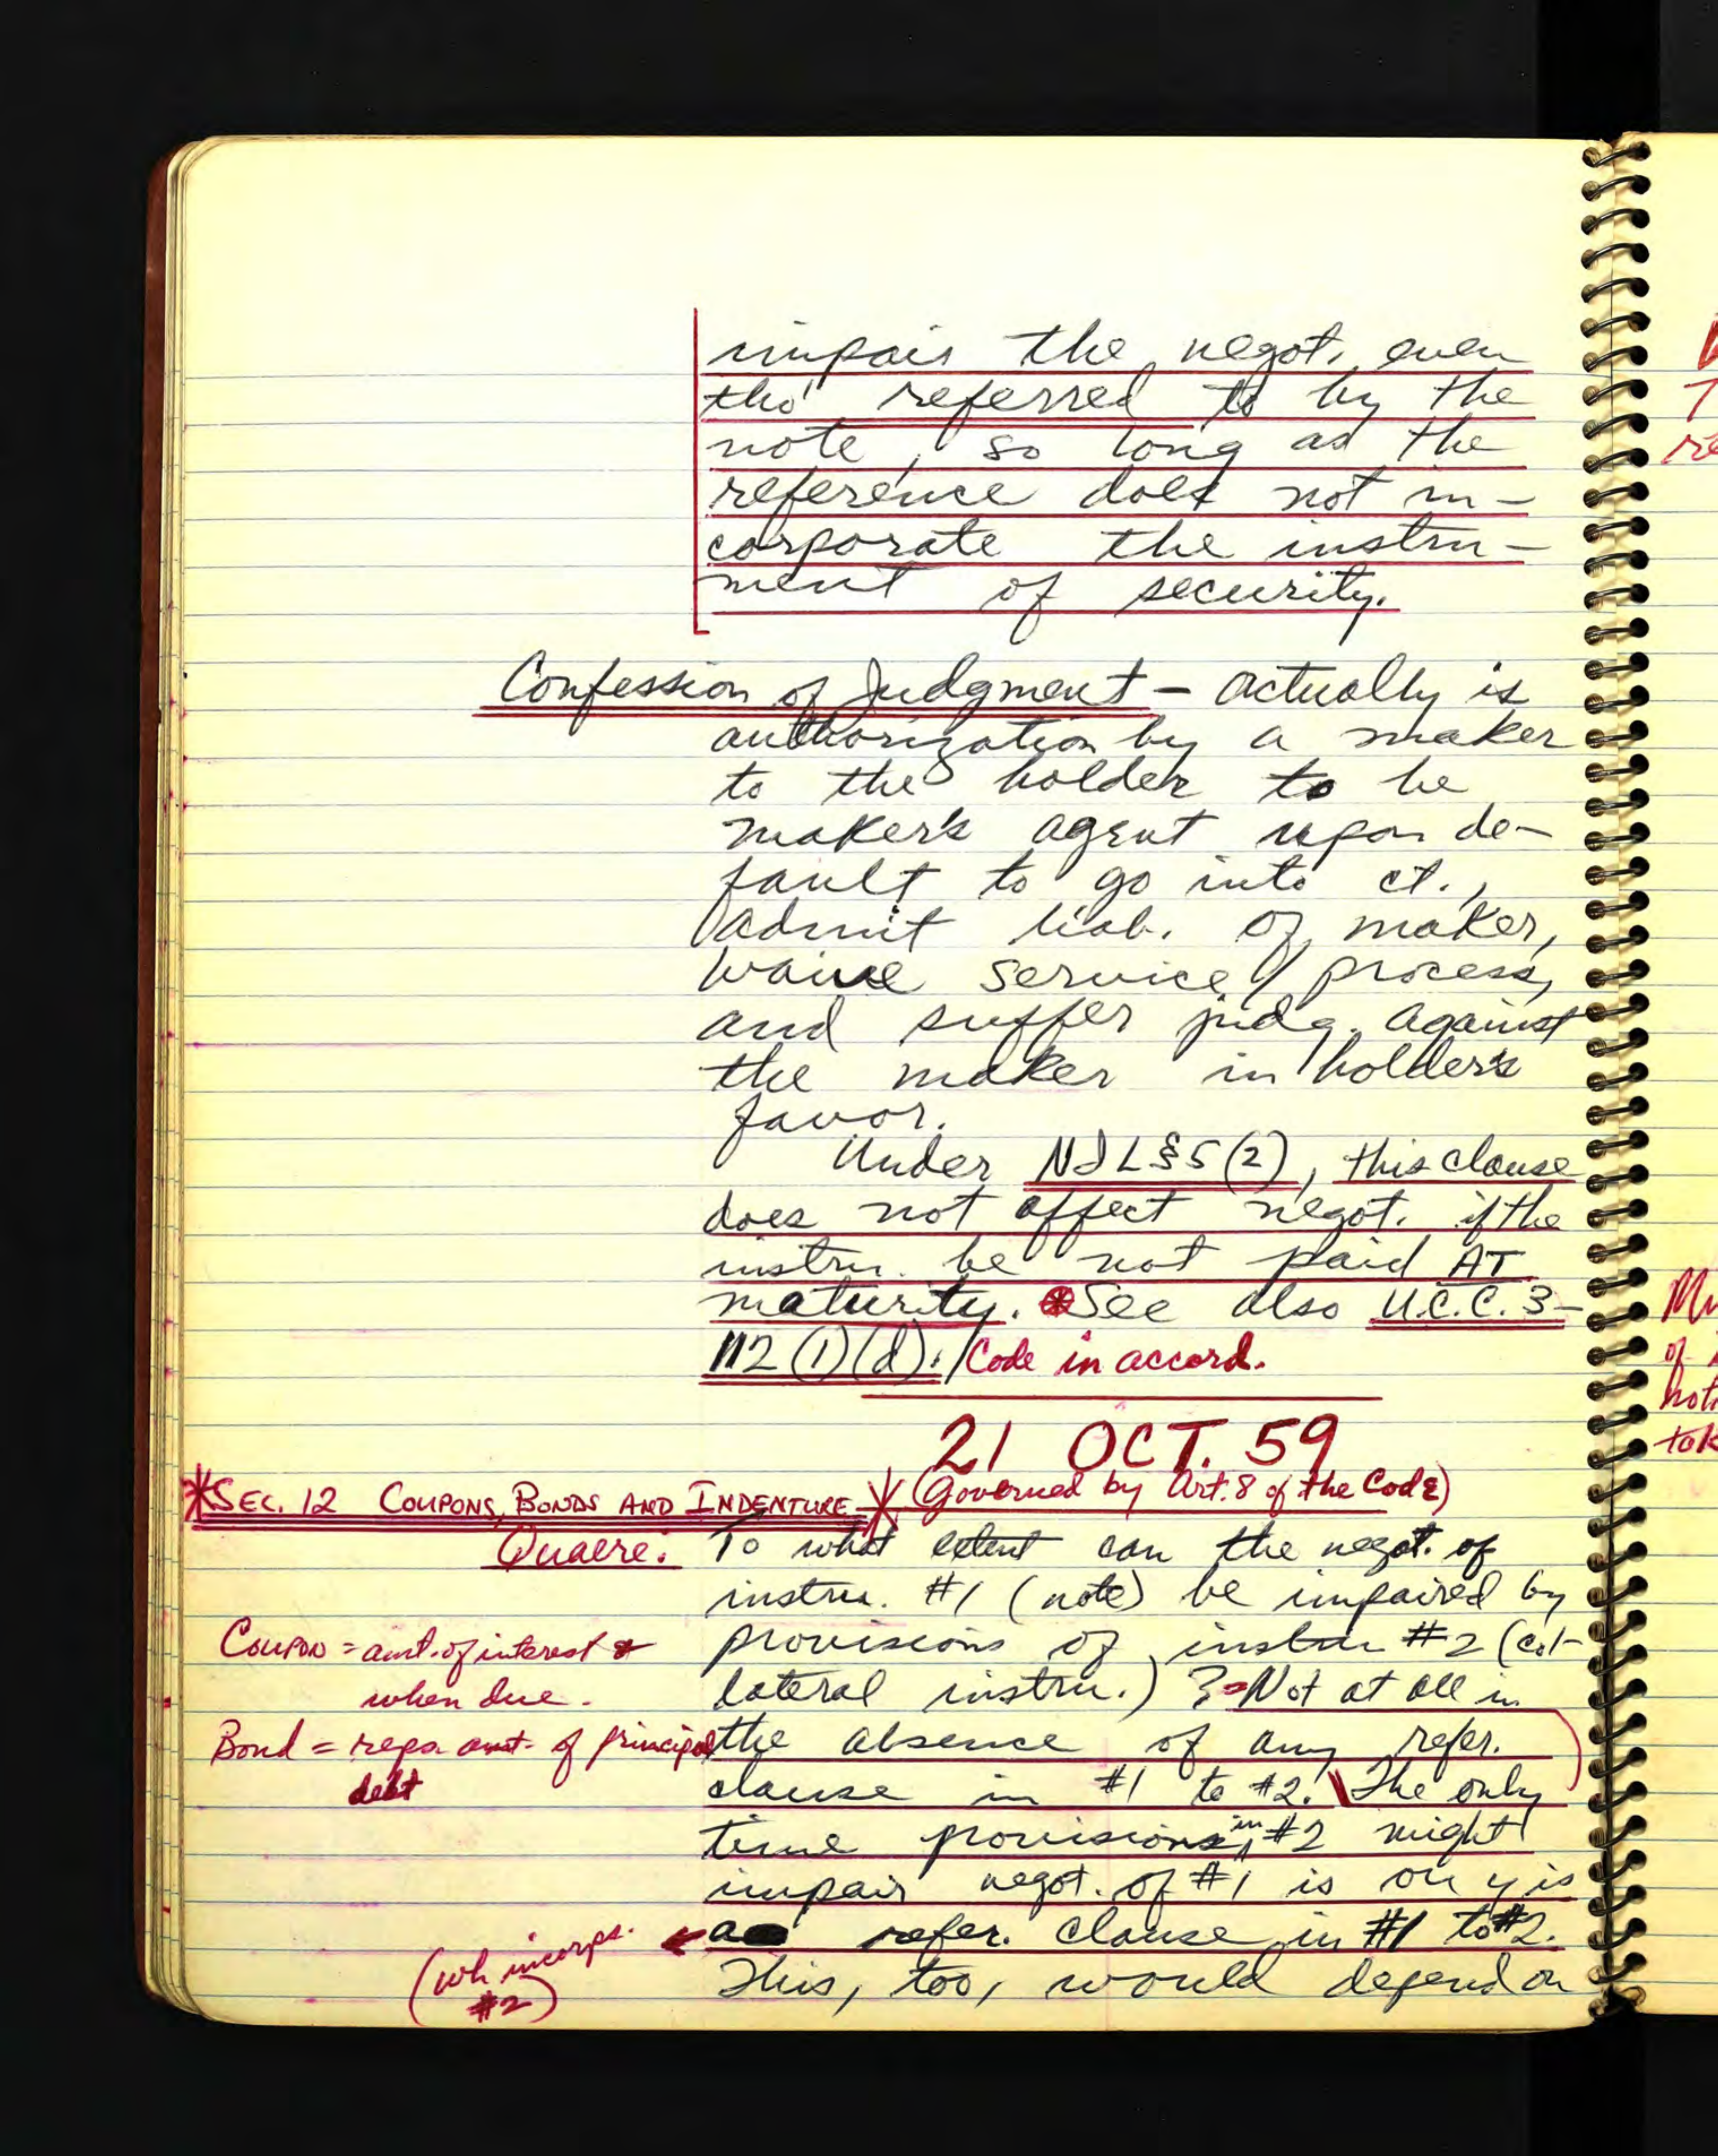 impair the negot. even
tho' referred to by the
note, so long as the
reference does not in-
corporate the instru-
ment of security.
Confession of Judgment - actually is
authorization by a maker
to the holder to be
maker's agent upon de-
fault to go into ct.,
admit liab. of maker,
waive service / process,
and suffer judg. against
the maker in holder's
favor.
Under NIL§5(2), this clause
does not affect negot. if the
instru. be not paid AT
maturity. *See also U.C.C. 3-
112(1)(d). / Code in accord.
21 OCT. 59
*SEC. 12 COUPONS, BONDS AND INDENTURE * (Governed by Art. 8 of the Code)
Quaere. To what extent can the negot. of
instru. #1 (note) be impaired by
provisions of instru #2 (col-
lateral instru.)? - Not at all in
the absence of any refer.
clause in #1 to #2. \ The only
time provisions in #2 might
impair negot. of #1 is on
a refer. clause in #1 to #2.
This, too, would depend on
Coupon = amt. of interest &
when due.
Bond = reps amt. of principal
debt
(wh incorps.
#2)